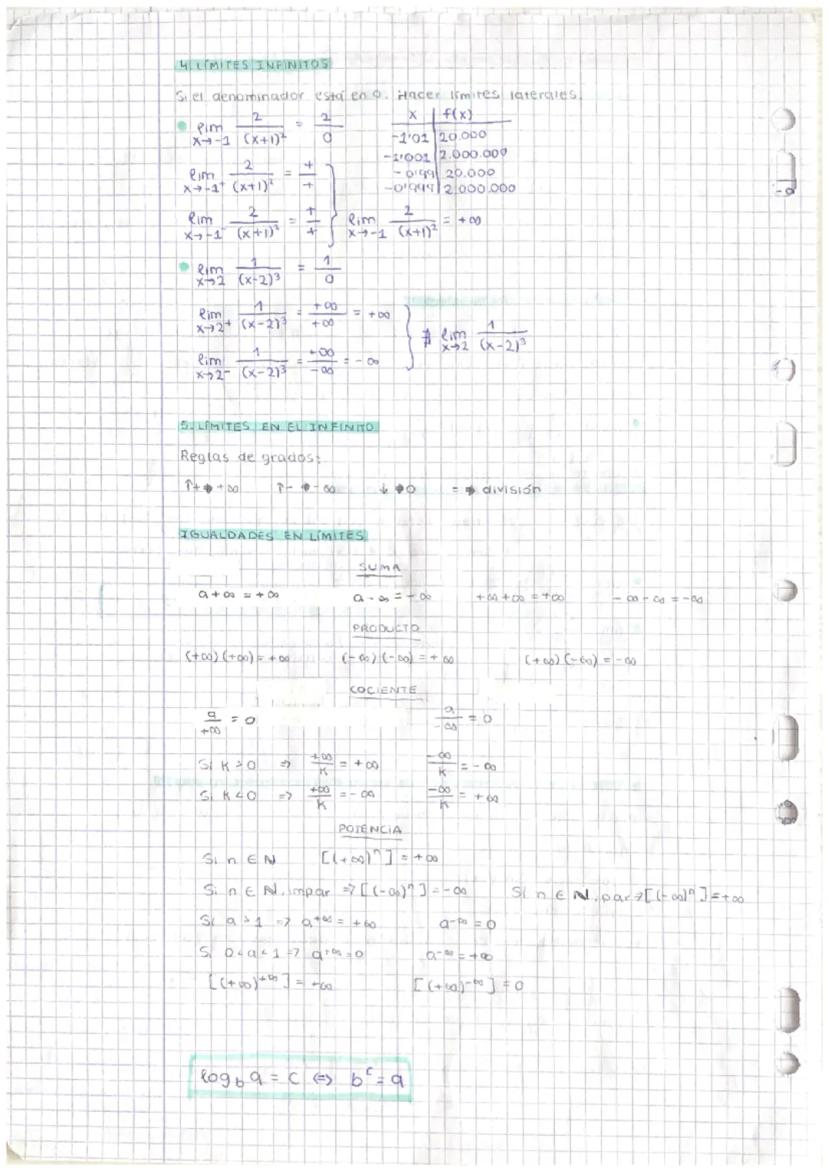 4. LÍMITES INFINITOS
Si el denominador está en 0. Hacer límites laterales.
lim x→-1 2/(x+1)² = 2/0
x | f(x)
-1'01 | 20.000
-1'001 | 2.000.000
-0'99 | 20.000
-0'999 | 2.000.000
lim x→-1⁺ 2/(x+1)² = +/+
lim x→-1⁻ 2/(x+1)² = +/+ } lim x→-1 2/(x+1)² = +∞
lim x→2 1/(x-2)³ = 1/0
lim x→2⁺ 1/(x-2)³ = +∞/+∞ = +∞
lim x→2⁻ 1/(x-2)³ = +∞/-∞ = -∞ } ∄ lim x→2 1/(x-2)³
5. LÍMITES EN EL INFINITO
Reglas de grados:
↑+ → +∞ ↑- → -∞ ↓ → 0 = → división
IGUALDADES EN LÍMITES
SUMA
a + ∞ = +∞ a - ∞ = -∞ +∞ + ∞ = +∞ -∞ - ∞ = -∞
PRODUCTO
(+∞)(+∞) = +∞ (-∞)(-∞) = +∞ (+∞)(-∞) = -∞
COCIENTE
a/+∞ = 0 a/-∞ = 0
Si K > 0 ⇒ +∞/K = +∞ -∞/K = -∞
Si K < 0 ⇒ +∞/K = -∞ -∞/K = +∞
POTENCIA
Si n ∈ N [(+∞)ⁿ] = +∞
Si n ∈ N, impar ⇒ [(-∞)ⁿ] = -∞ Si n ∈ N, par ⇒ [(-∞)ⁿ] = +∞
Si a > 1 ⇒ a^+∞ = +∞ a^-∞ = 0
Si 0 < a < 1 ⇒ a^+∞ = 0 a^-∞ = +∞
[(+∞)^+∞] = +∞ [(+∞)^-∞] = 0
log_b a = c ⇔ b^c = a